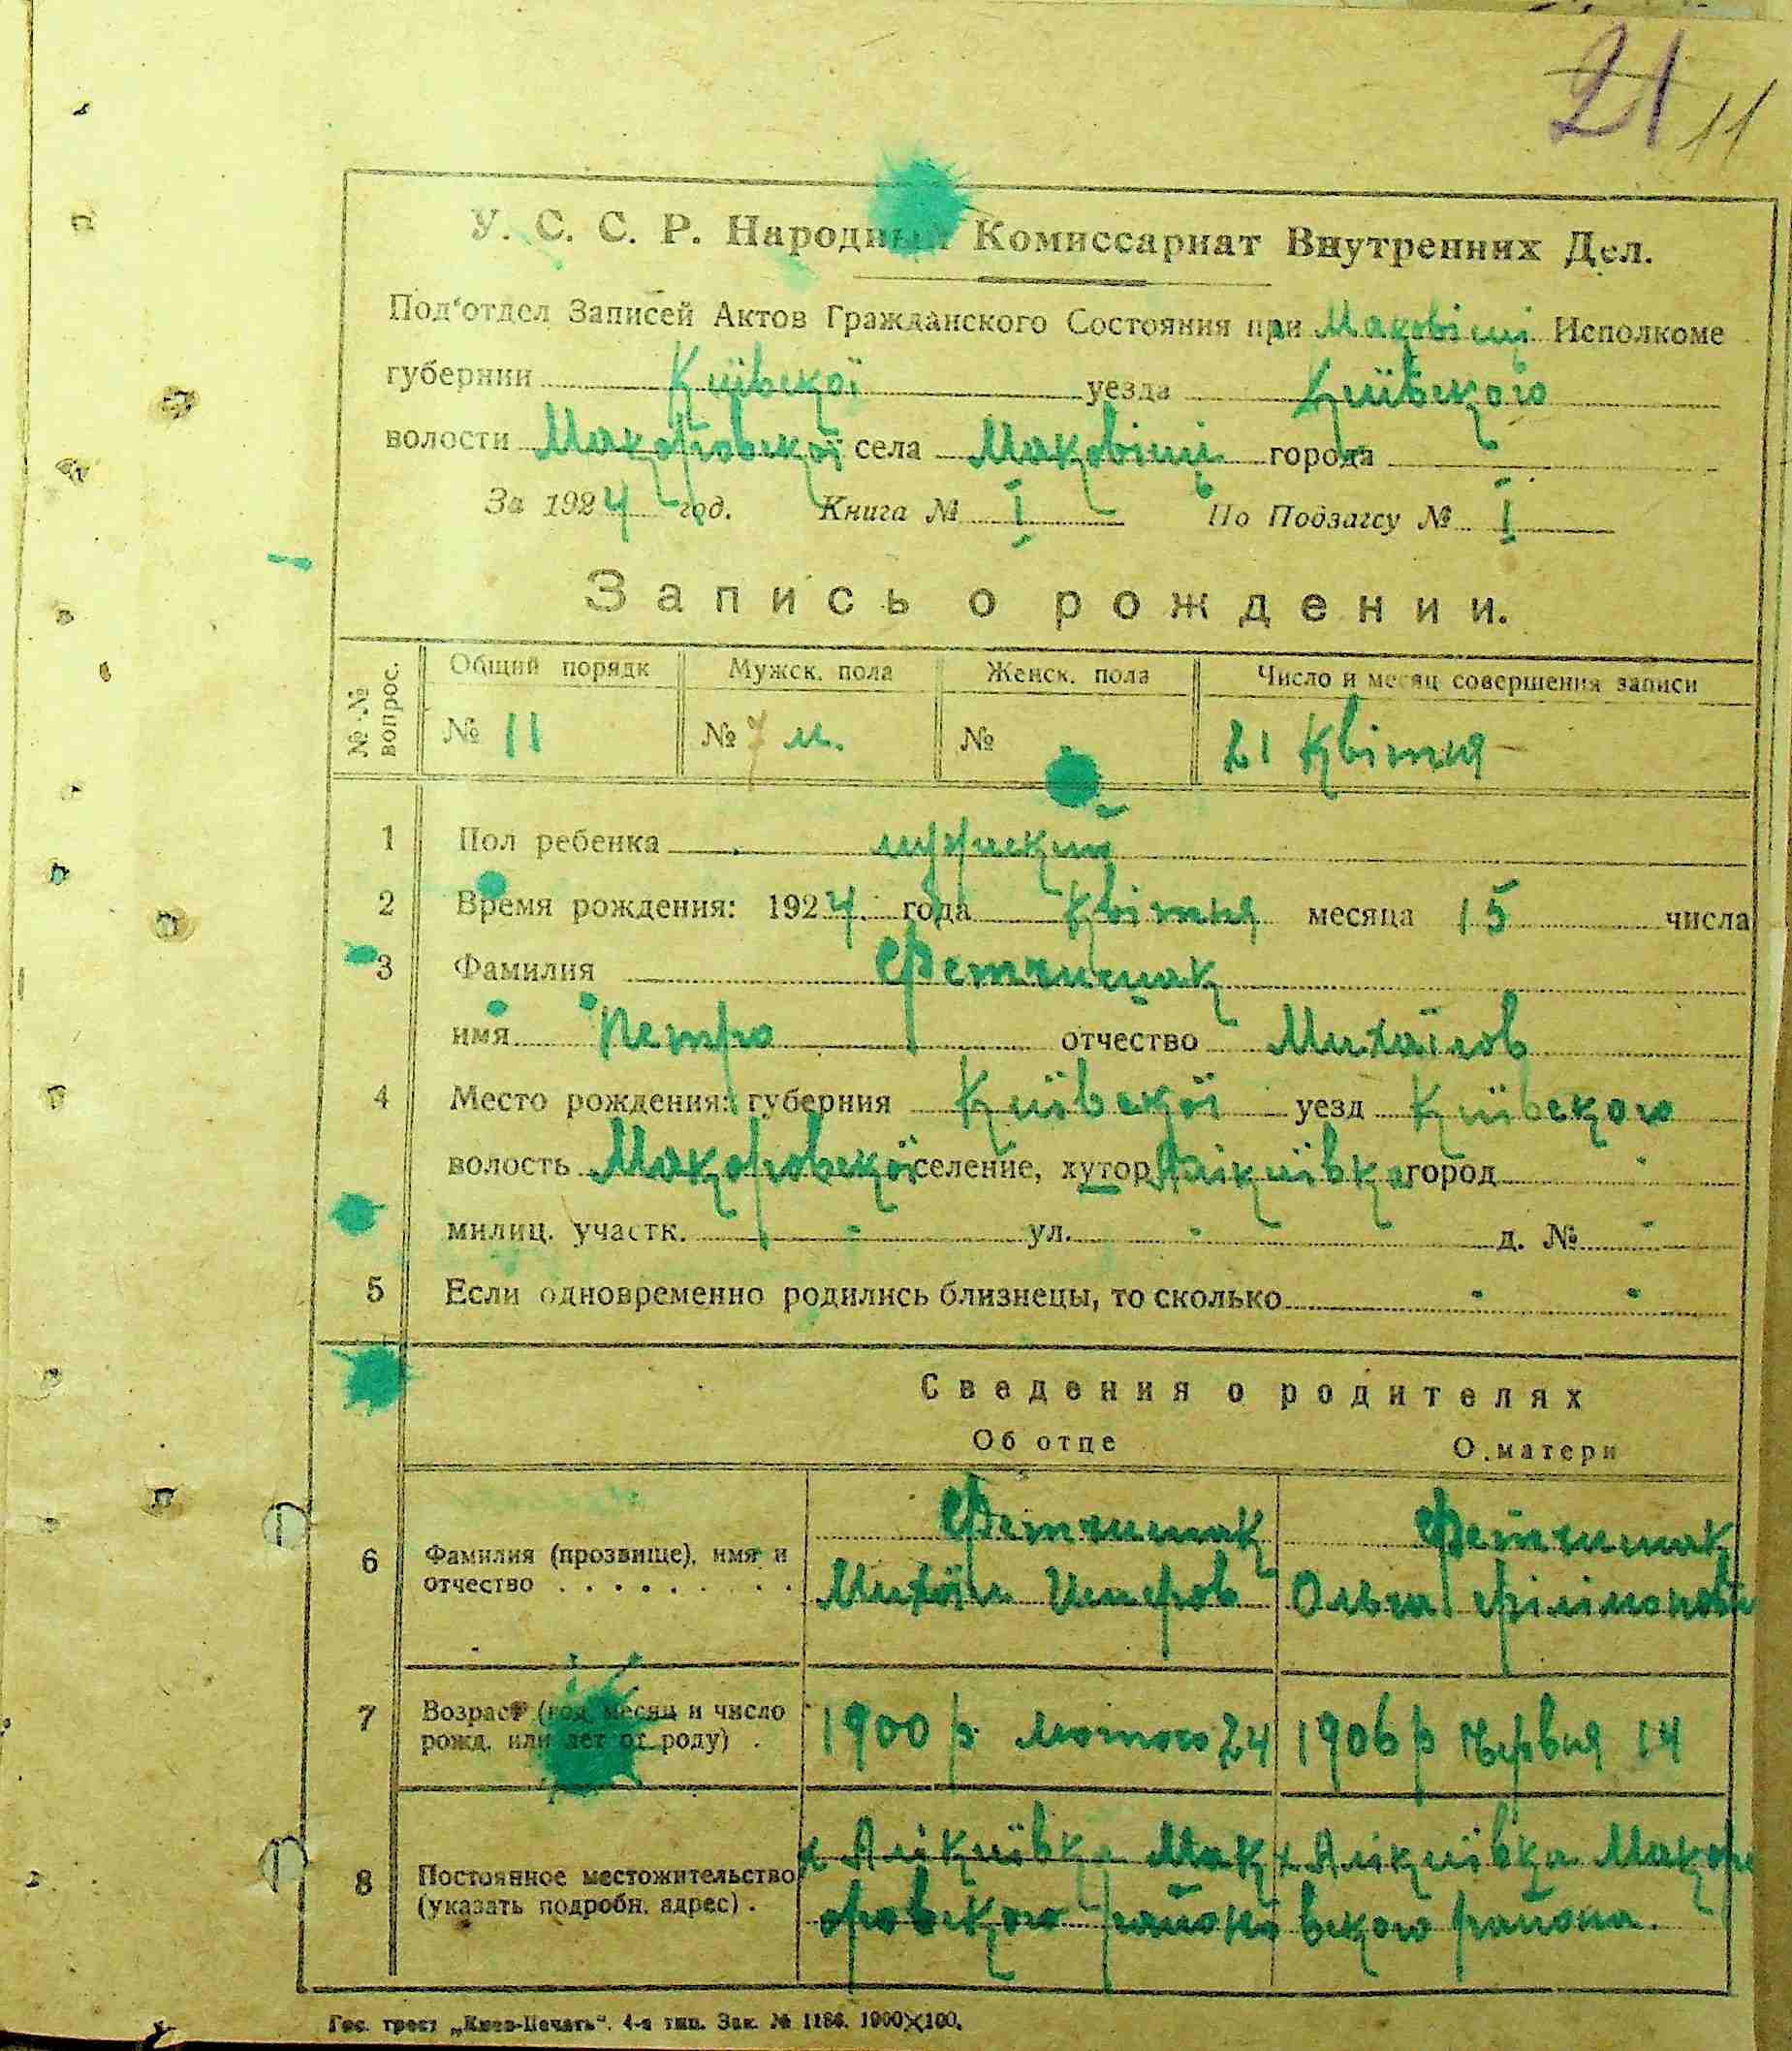 21 11
У. С. С. Р. Народный Комиссариат Внутренних Дел.
Под‘отдел Записей Актов Гражданского Состояния при Маковіщі Исполкоме
губернии Київської уезда Київського
волости Макоровської села Маковіщі города
За 1924 год. Книга № I По Подзагсу № I
Запись о рождении.
№ № вопрос. Общий порядк Мужск. пола Женск. пола Число и месяц совершения записи
№ 11 № 7 м. № 21 Квітня
1 Пол ребенка мужський
2 Время рождения: 1924. года Квітня месяца 15 числа
3 Фамилия
имя Петро отчество Михайлов
4 Место рождения: губерния Київської уезд Київського
волость Макоровської селение, хутор город
милиц. участк. - ул. - д. № -
5 Если одновременно родились близнецы, то сколько - -
Сведения о родителях
Об отце О матери
6 Фамилия (прозвище), имя и
отчество
Михайло Ольга Філімонова
7 Возраст (год, месяц и число
рожд. или лет от роду) .
1900 р. лютого 24 1906 р Червня 14
8 Постоянное местожительство
(указать подробн. адрес) .
х Мак х Мако
оровского района вского района.
Гос. трест „Киев-Печать“. 4-я тип. Зак. № 1186. 1000×100.